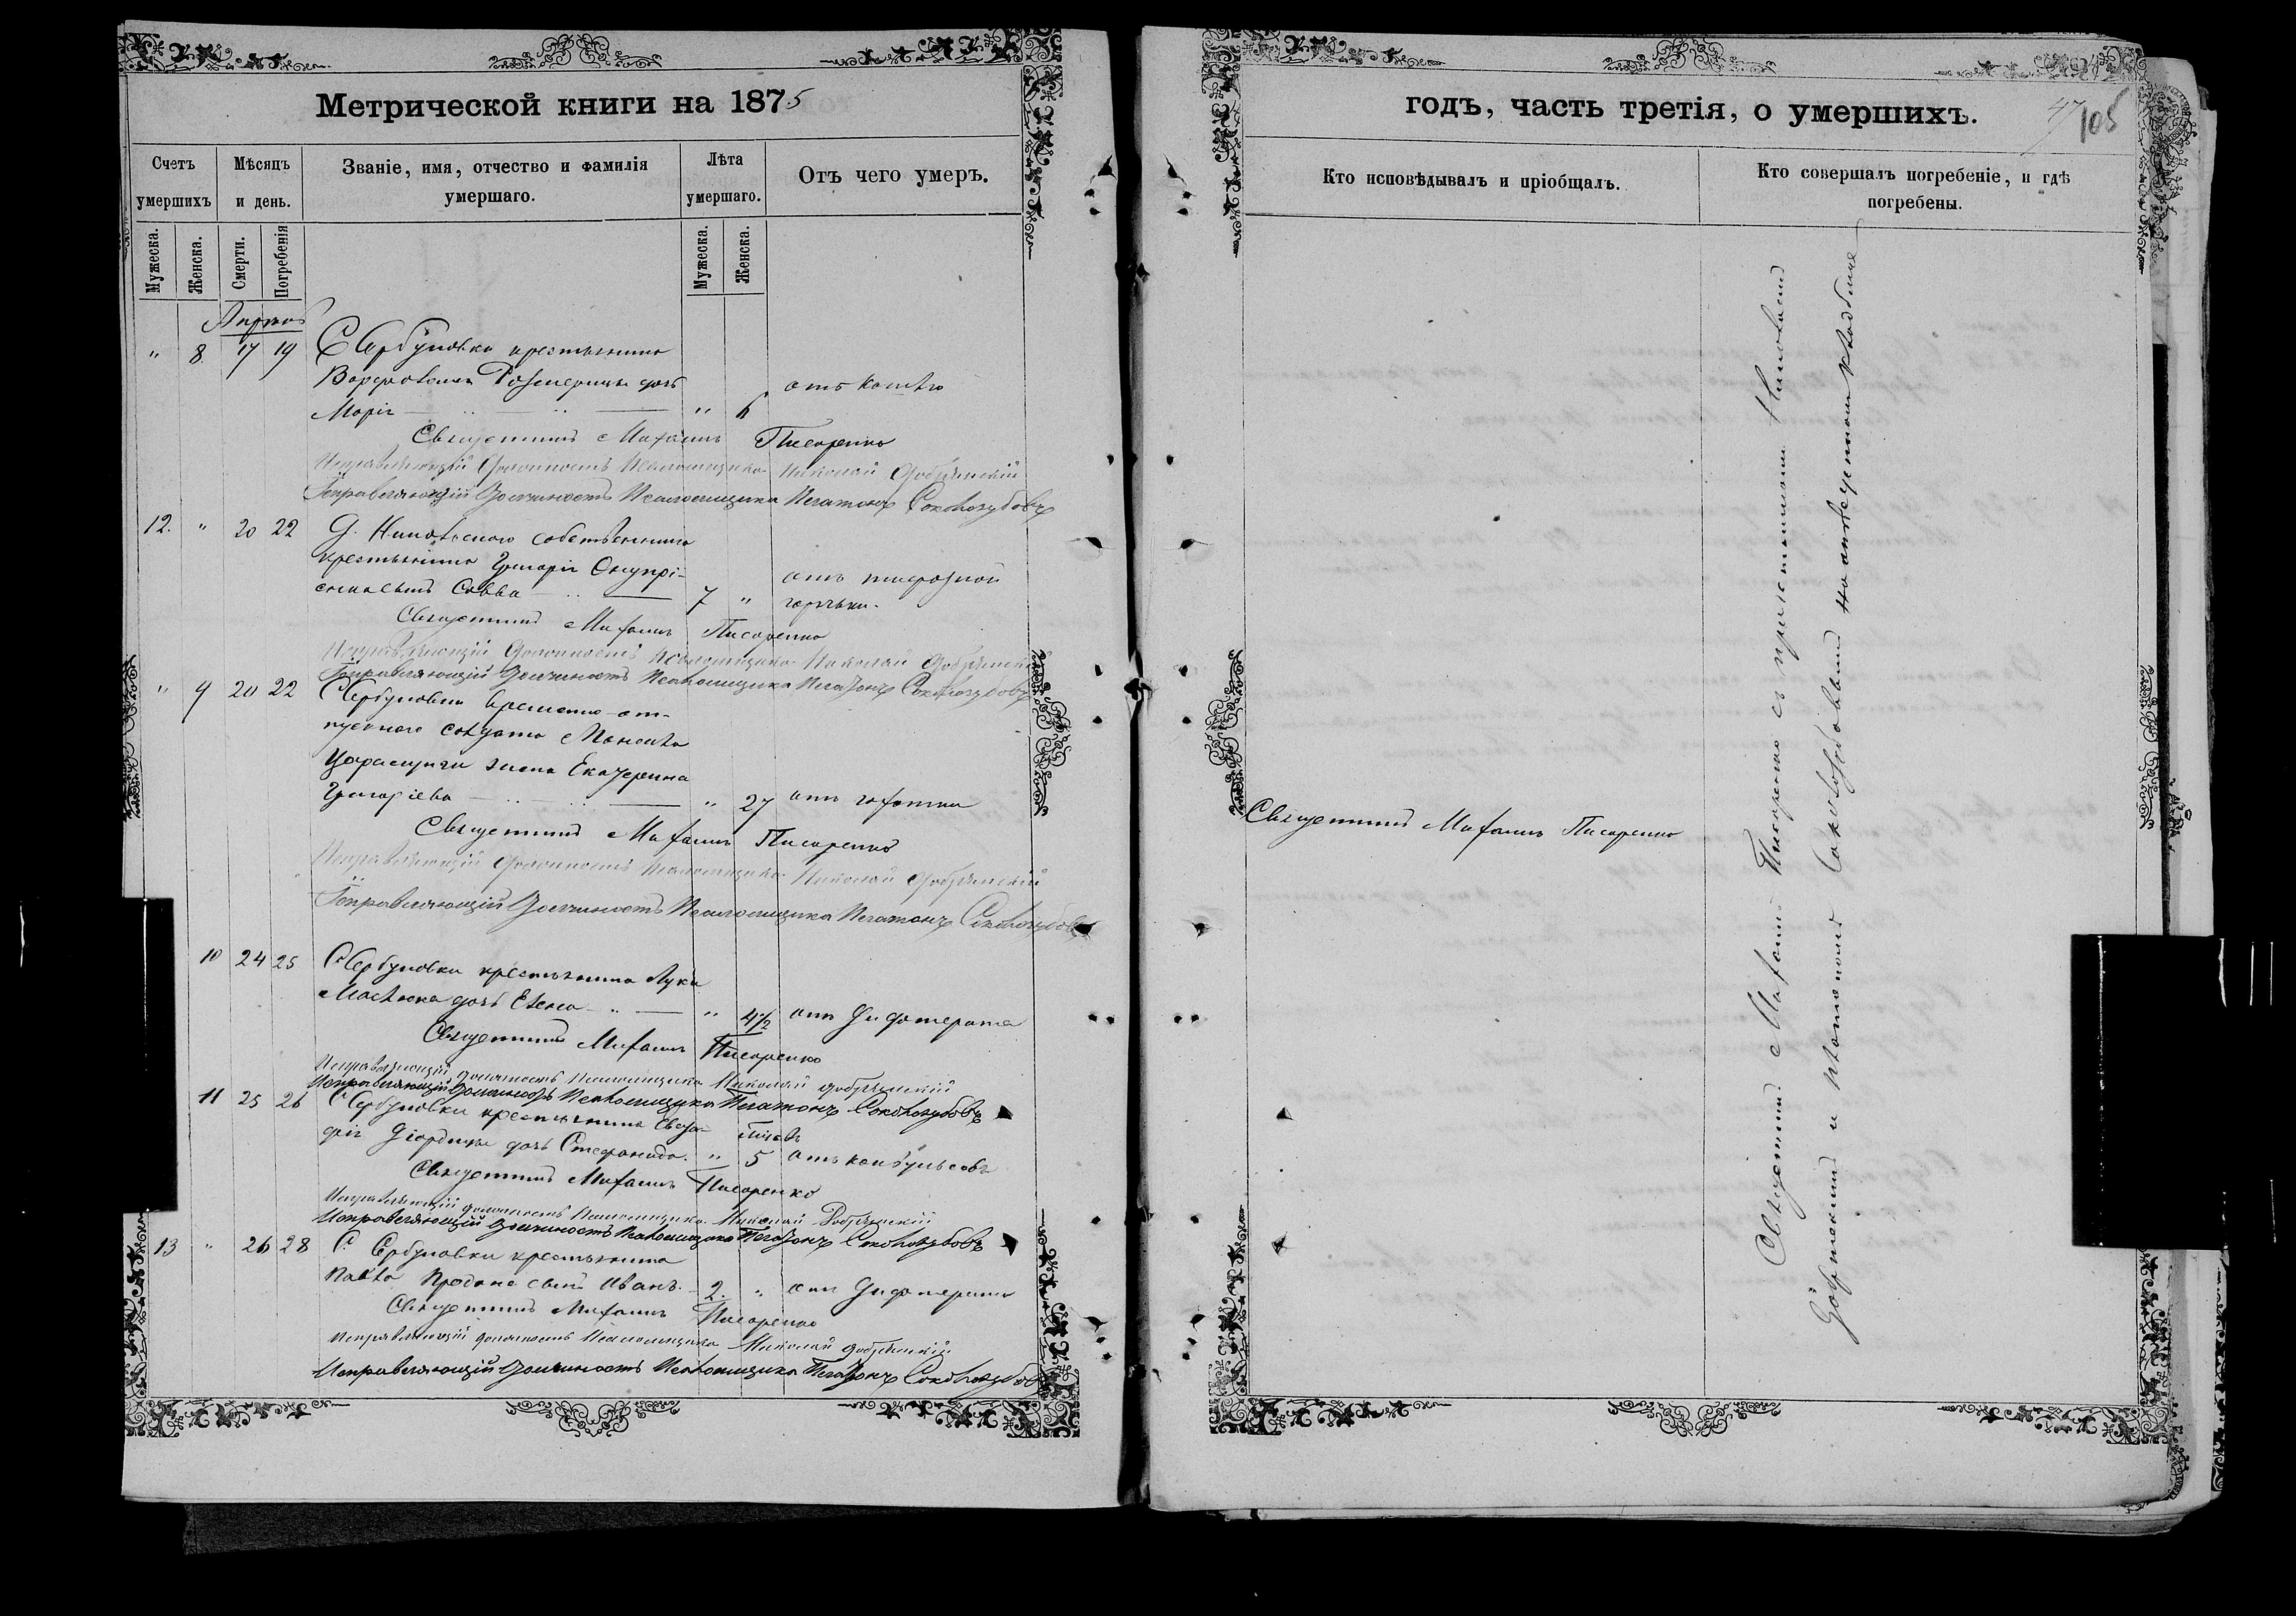 Метрической книги на 1875
Счетъ умершихъ
Мѣсяцъ и день.
Званіе, имя, отчество и фамилія умершаго.
Лѣта умершаго.
Отъ чего умеръ.
Мужеска.
Женска.
Смерти.
Погребенія
Мужеска.
Женска.
Апрѣль
" 8. 17 19 С Сербуловки крестьянина
дочь
Марія " 6 отъ кашлю
Священникъ Михаилъ Писаренко
Исправляющій Должность Псаломщика Николай Добрянскій
Исправляющій Должность Псаломщика Платонъ Соколозубовъ
12. " 20 22 Д. собственника
крестьянина Григорія
сынъ Савва 7 " отъ тифозной
горячки.
Священникъ Михаилъ Писаренко
Исправляющій Должность Псаломщика Николай Добрянскій
Исправляющій Должность Псаломщика Платонъ Соколозубовъ
" 9 20 22 С Сербуловки временно-от-
пускного солдата
жена Екатерина
Григоріева " 27 отъ чахотки
Священникъ Михаилъ Писаренко
Исправляющій Должность Псаломщика Николай Добрянскій
Исправляющій Должность Псаломщика Платонъ Соколозубовъ
10 24 25 С. Сербуловки крестьянина Луки
дочь Елена " 4½ отъ дифтерита
Священникъ Михаилъ Писаренко
Исправляющій Должность Псаломщика Николай Добрянскій
Исправляющій Должность Псаломщика Платонъ Соколозубовъ
11 25 26 С Сербуловки крестьянина
дочь Стефанида. " 5 отъ конвульсовъ
Священникъ Михаилъ Писаренко
Исправляющій Должность Псаломщика Николай Добрянскій
Исправляющій Должность Псаломщика Платонъ Соколозубовъ
13 " 26 28 С. Сербуловки крестьянина
Павла сынъ Иванъ. 2. " отъ дифтерита
Священникъ Михаилъ Писаренко
Исправляющій Должность Псаломщика Николай Добрянскій
Исправляющій Должность Псаломщика Платонъ Соколозубовъ
годъ, часть третія, о умершихъ.
47
105
Кто исповѣдывалъ и пріобщалъ.
Кто совершалъ погребеніе, и гдѣ погребены.
Священникъ Михаилъ Писаренко
Священникъ Михаилъ Писаренко съ причетниками Николаемъ
Добрянскимъ и Платономъ Соколозубовымъ на отведенномъ кладбище